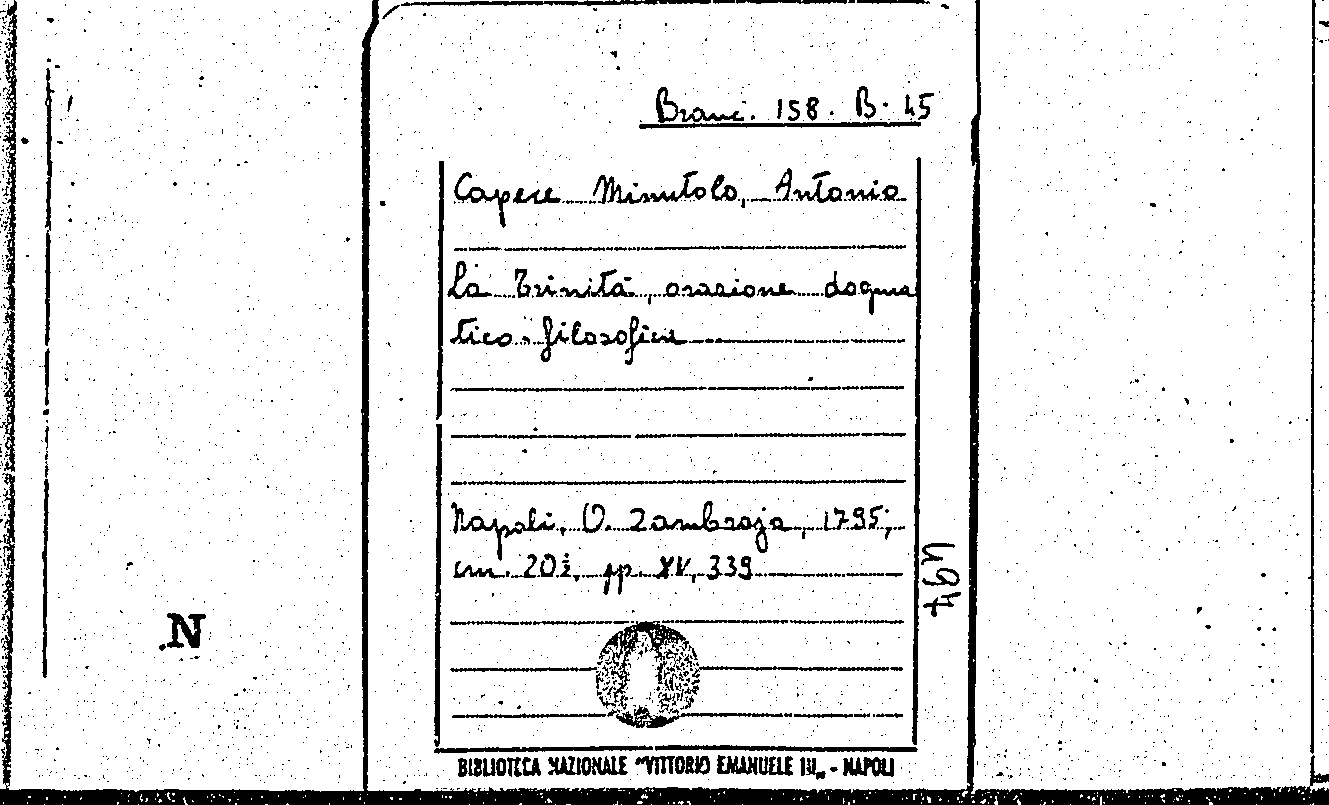 Branc. 158. B. 45
Capece Minutolo, Antonio
La Trinità, orazione dogma
tico-filosofica
Napoli, V. Zambraja, 1795;
cm. 20½, pp. XV, 339
497
N
BIBLIOTECA NAZIONALE "VITTORIO EMANUELE III„ - NAPOLI